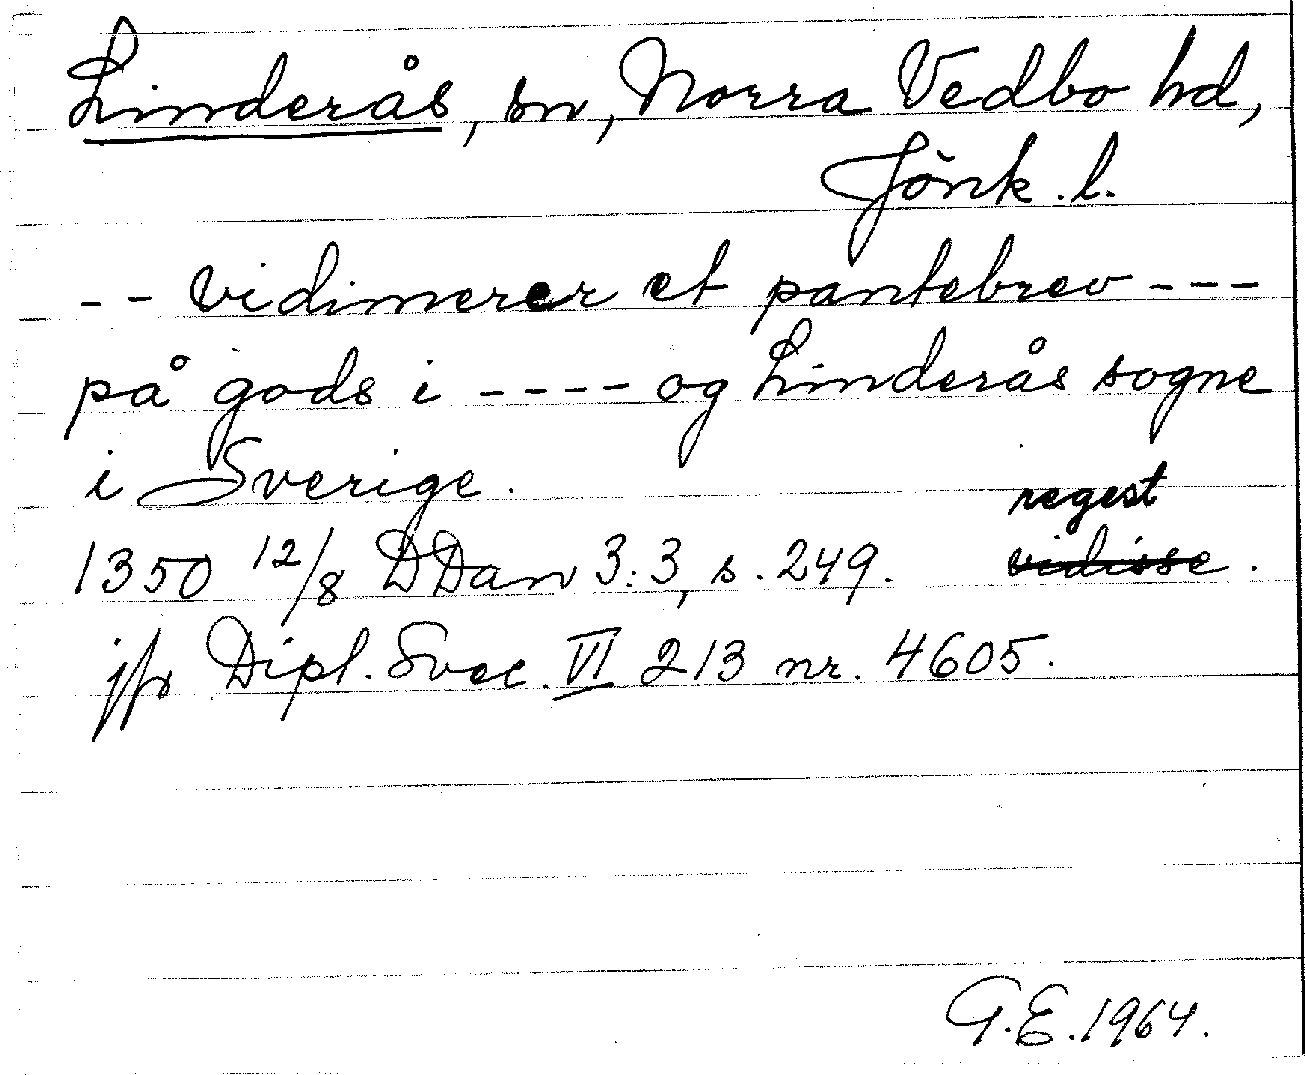 Linderås, sn, Norra Vedbo hd,
Jönk. l.
-- vidimerer et pantebrev ---
på gods i ---- og Linderås sogne
i Sverige.
regest
1350 12/8 DDan 3:3, s. 249. vidisse.
jfr Dipl. Svec. VI 213 nr. 4605.
G.E. 1964.